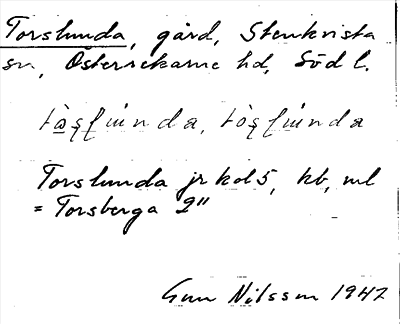 Torslunda, gård, Stenkvista
sn, Österrekarne hd, Söd l.
Torslunda jr kol 5, kb, ml
= Torsberga 2"
Gun Nilsson 1947